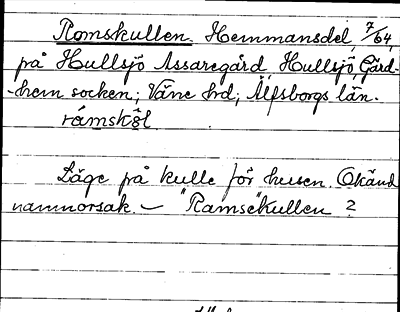 Romskullen. Hemmansdel, 7/64,
på Hullsjö Assaregård, Hullsjö, Gärd-
-hem socken; Väne hrd; Älfsborgs län.
råmskôl
Läge på kulle för husen. Okänd
namnorsak. — "Ramse"kullen ?